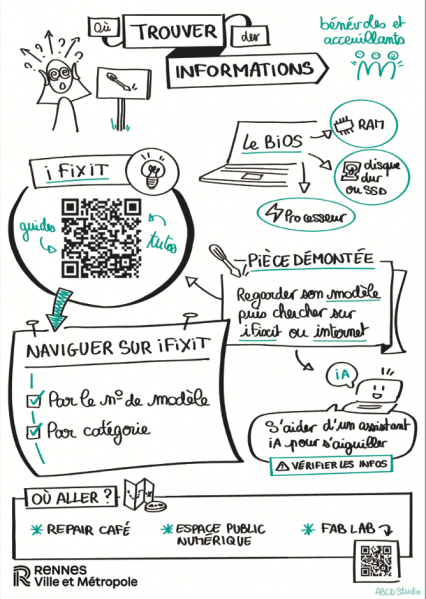 Où TROUVER des
INFORMATIONS
bénévoles et
acceuillants
? ? ? ? ?
Le BiOS
RAM
disque
dur
ou SSD
Processeur
i FixiT
guides
tutos
PIÈCE DÉMONTÉE
Regarder son modèle
puis chercher sur
iFixit ou internet
NAVIGUER SUR iFiXiT
Par le n° de modèle
Par catégorie
iA
S'aider d'un assistant
iA pour s'aiguiller
VÉRIFIER LES INFOS
OÙ ALLER ?
* REPAIR CAFÉ
* ESPACE PUBLIC
NUMÉRIQUE
* FAB LAB
RENNES
Ville et Métropole
ABCD Studio